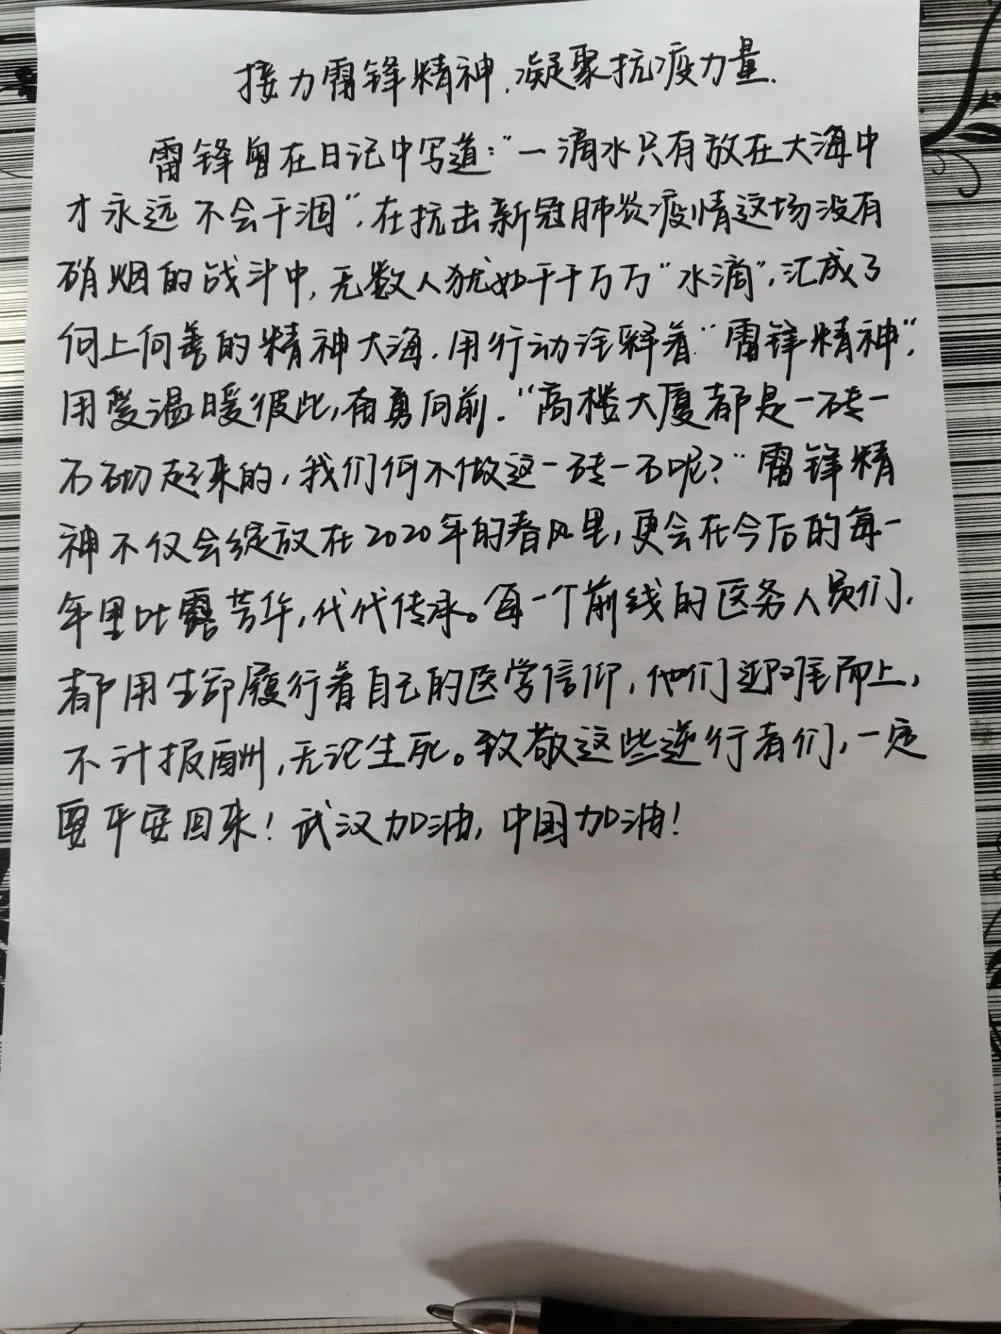 接力雷锋精神,凝聚抗疫力量.
雷锋曾在日记中写道:"一滴水只有放在大海中
才永远不会干涸",在抗击新冠肺炎疫情这场没有
硝烟的战斗中,无数人犹如千千万万"水滴",汇成了
向上向善的精神大海.用行动诠释着"雷锋精神",
用爱温暖彼此,奋勇向前."高楼大厦都是一砖一
石砌起来的,我们何不做这一砖一石呢?"雷锋精
神不仅会绽放在2020年的春风里,更会在今后的每一
年里吐露芳华,代代传承。每一个前线的医务人员们,
都用生命履行着自己的医学信仰,他们迎难而上,
不计报酬,无论生死。致敬这些逆行者们,一定
要平安回来!武汉加油,中国加油!